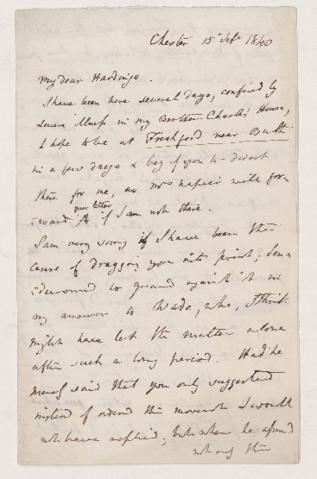 Chester 15th Septr 1840
My dear Hardinge.
I have been here several days, confined by
severe illness in my Brother Charles' House,
I hope to be at Freshford near Bath
in a few days & beg of you to direct
there for me, as Mrs Napier will for-
your letter
:ward it if I am not there.
I am very sorry if I have been the
cause of dragging you into print; I en
:deavoured to guard against it in
my answer to Wade, who, I think
might have let the matter alone
after such a long period. Had he
merely said that you only suggested
instead of ordered the movement I would
not have replied; but when he affirmed
not only this